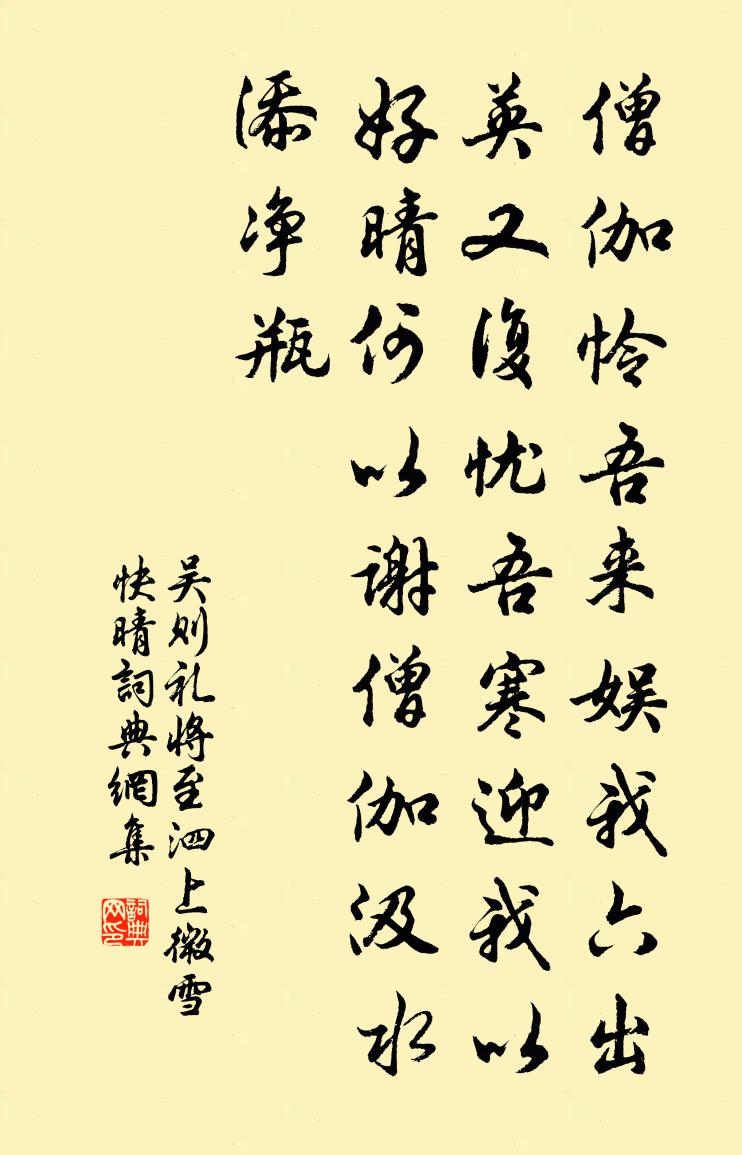 僧伽怜吾来娱我六出
英又復忧吾寒迎我以
好晴何以谢僧伽汲水
添净瓶
吴则礼将至泗上微雪
快晴詞典網集
詞典网印